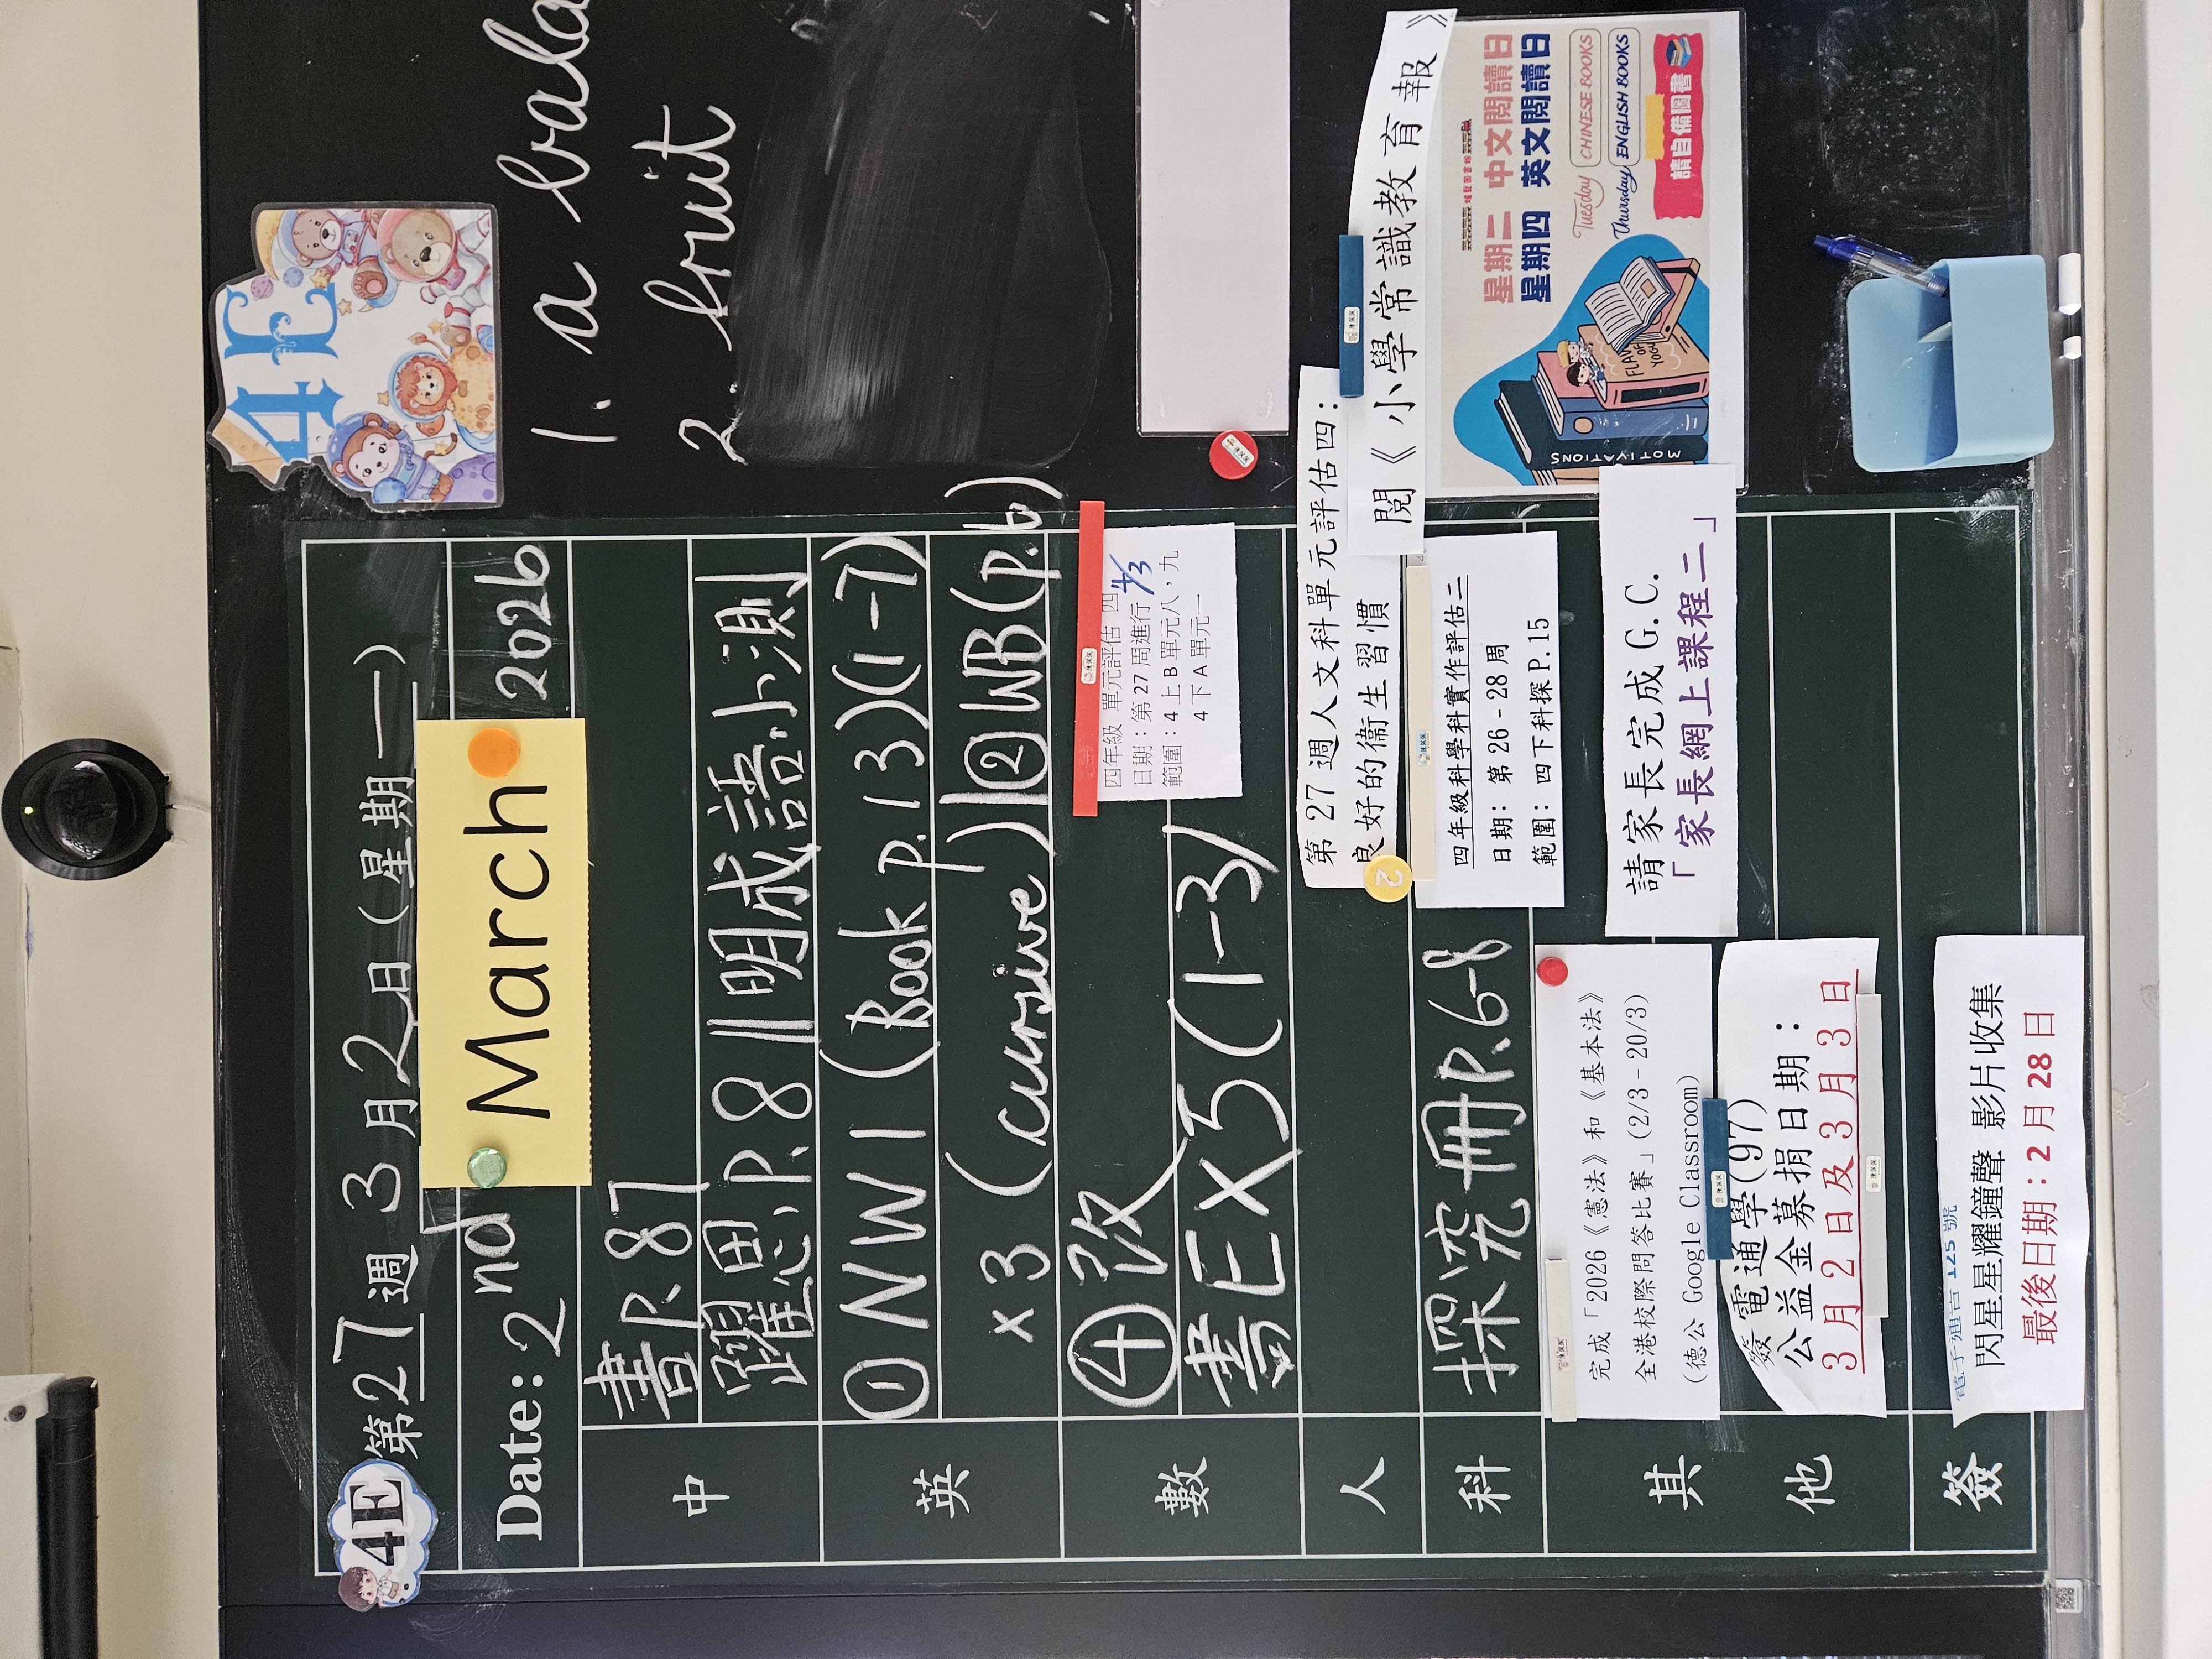 4E
第27週3月2日(星期一)
Date: 2nd March 2026
中
書P.87
躍思P.81 明成語小測
英
① NW1 (Book p.13)(1-7)
x3 (cursive) ② WB(p.6)
數
④改
書Ex5(1-3)
四年級 單元評估 四
日期：第27周進行 4/3
範圍：4上B單元八，九
4下A單元一
人
第27週人文科單元評估四：
良好的衞生習慣
閱《小學常識教育報》
科
探究冊P.6-8
四年級科學科實作評估二
日期：第26-28周
範圍：四下科探P.15
其他
完成「2026《憲法》和《基本法》
全港校際問答比賽」(2/3-20/3)
(德公 Google Classroom)
請家長完成 G.C.
「家長網上課程二」
簽電通學(97)
公益金募捐日期：
3月2日及3月3日
簽
電子通告 125 號
閃星星耀鐘聲 影片收集
最後日期：2月28日
4E
1. a bala
2. fruit
星期二 中文閱讀日
星期四 英文閱讀日
Tuesday CHINESE BOOKS
Thursday ENGLISH BOOKS
請自備圖書
MOTIVATIONS
2